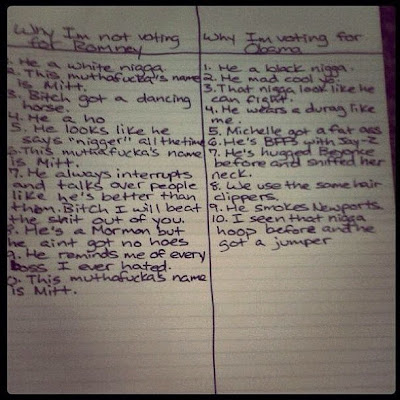 Why I'm not voting
for Romney
1. He a white nigga.
2. This muthafucka's name
is Mitt.
3. Bitch got a dancing
horse.
4. He a ho
5. He looks like he
says "nigger" all the time
6. This muthafucka's name
is Mitt.
7. He always interrupts
and talks over people
like he's better than
them. Bitch I will beat
the shit out of you.
8. He's a Mormon but
he aint got no hoes
9. He reminds me of every
boss I ever hated.
0. This muthafucka's name
is Mitt.
Why I'm voting for
Obama
1. He a black nigga.
2. He mad cool yo.
3. That nigga look like he
can fight.
4. He wears a durag like
me.
5. Michelle got a fat ass
6. He's BFFs with Jay-Z
7. He's hugged Beyonce
before and sniffed her
neck.
8. We use the same hair
clippers.
9. He smokes Newports.
10. I seen that nigga
hoop before and he
got a jumper